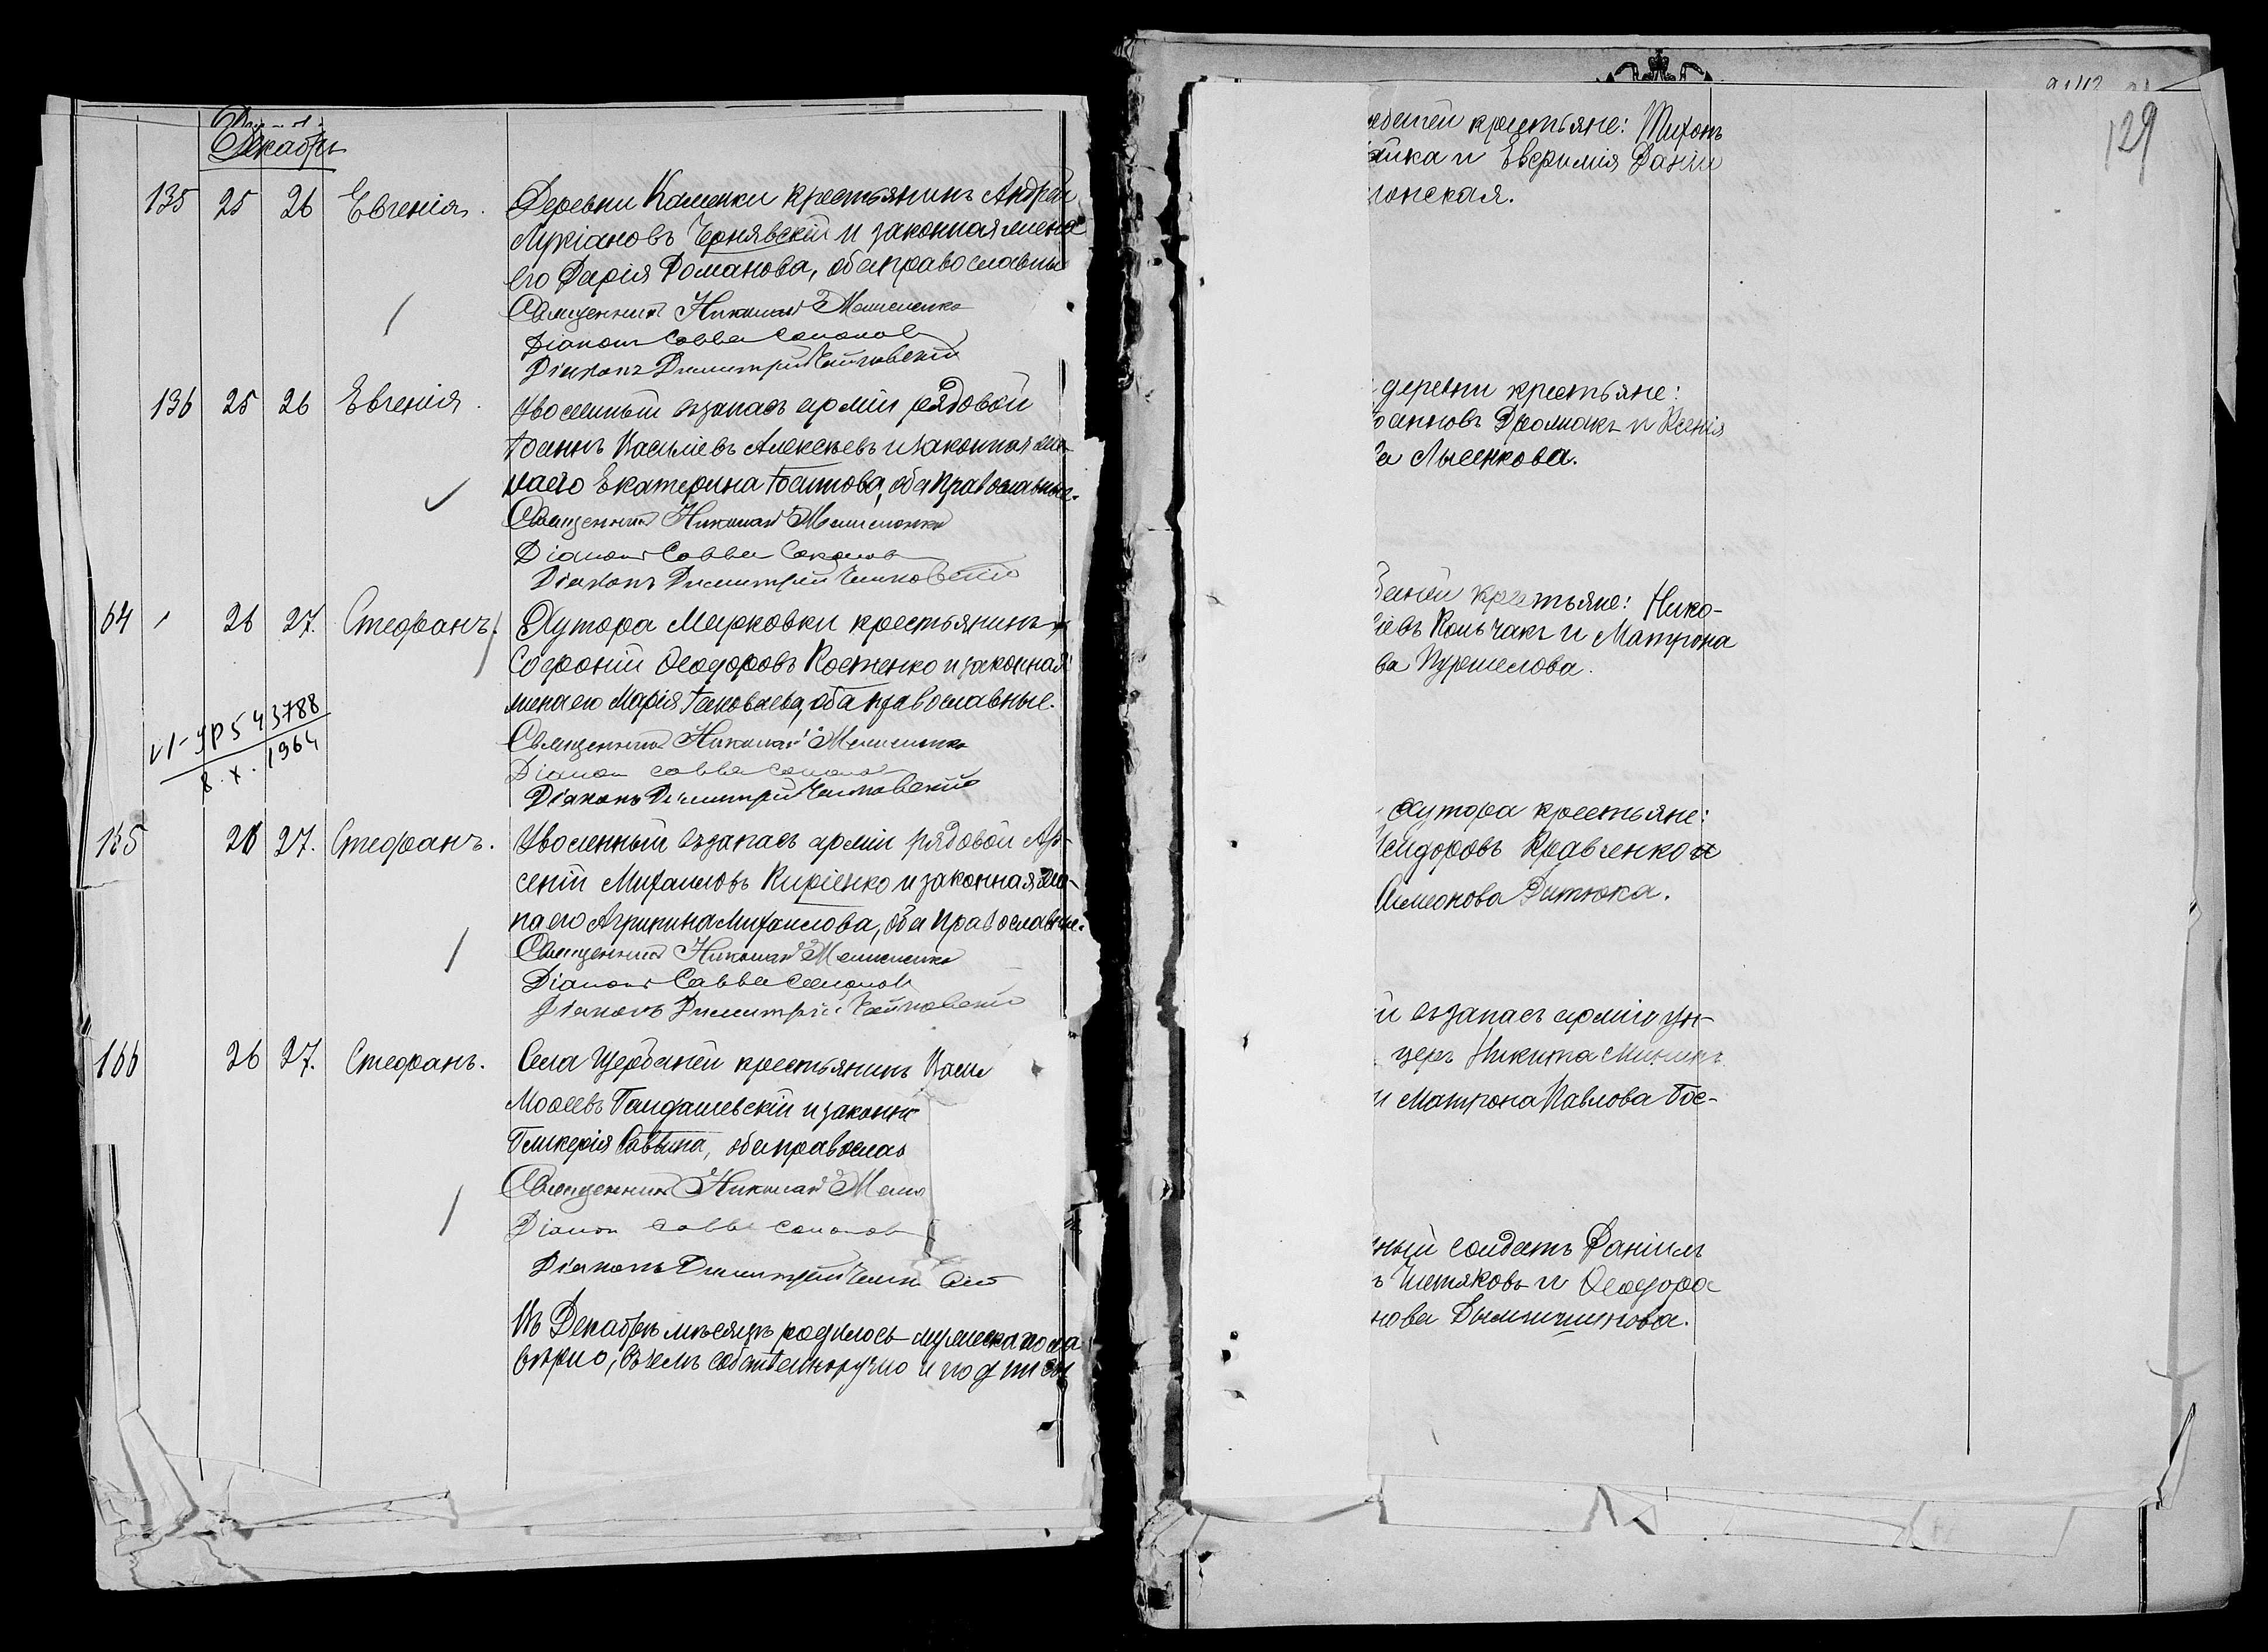 Декабрь
135 25 26 Евгенія. Деревни Каменки крестьянинъ Андрей
Лукіановъ Чернявскій и законная жена
его Дарія Романова, оба православные
Священникъ Николай
Діаконъ Савва Соколовъ
Діаконъ Димитрій
136 25 26 Евгенія. Уволенный въ запасъ арміи рядовой
Іоаннъ Василіевъ Алексѣевъ и законная же-
на его Екатерина Іосифова, оба православные.
Священникъ Николай
Діаконъ Савва Соколовъ
Діаконъ Димитрій
64 26 27. Стефанъ. Хутора Марковки крестьянинъ
Софроній Ѳеодоровъ Костенко и законная
жена его Марія Іаковлева, оба православные.
Священникъ Николай
Діаконъ Савва Соколовъ
Діаконъ Димитрій
VI-УР 543788
8.X.1964
165 26 27. Стефанъ. Уволенный въ запасъ арміи рядовой Ар-
сеній Михаиловъ Киріенко и законная же-
на его Агрипина Михаилова, оба православные.
Священникъ Николай
Діаконъ Савва Соколовъ
Діаконъ Димитрій
166 26 27. Стефанъ. Села Щербаней крестьянинъ Васи
Моѵсеевъ Гайдашевскій и законн
Гликерія Саввина, оба православ
Священникъ Николай
Діаконъ Савва Соколовъ
Діаконъ Димитрій
Въ Декабрѣ мѣсяцѣ родилось мужеска пола
вѣрно, въ чемъ собственноручно и подписы
129
крестьяне: Тихонъ
йка и Евфимія Даніи
онская.
деревни крестьяне:
оанновъ и Ксенія
ва Лысенкова.
баней крестьяне: Нико-
іевъ Колчакъ и Матрона
ва
хутора крестьяне:
Исидоровъ Кравченко и
Симеонова
й въ запасъ арміи ун-
церъ Никита
и Матрона Павлова
ный солдатъ Даніилъ
ъ и Ѳеодора
нова